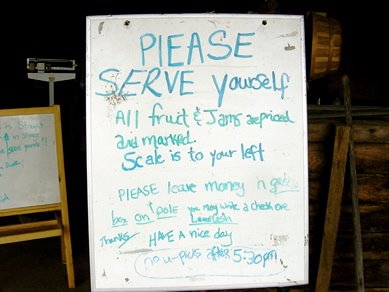 PIEASE
SERVE yourself
All fruit & Jams are priced
and marked.
Scale is to your left
PLEASE leave money n
box on pole you may write a check
Thanks HAVE A nice day
no u-picks after 5:30pm